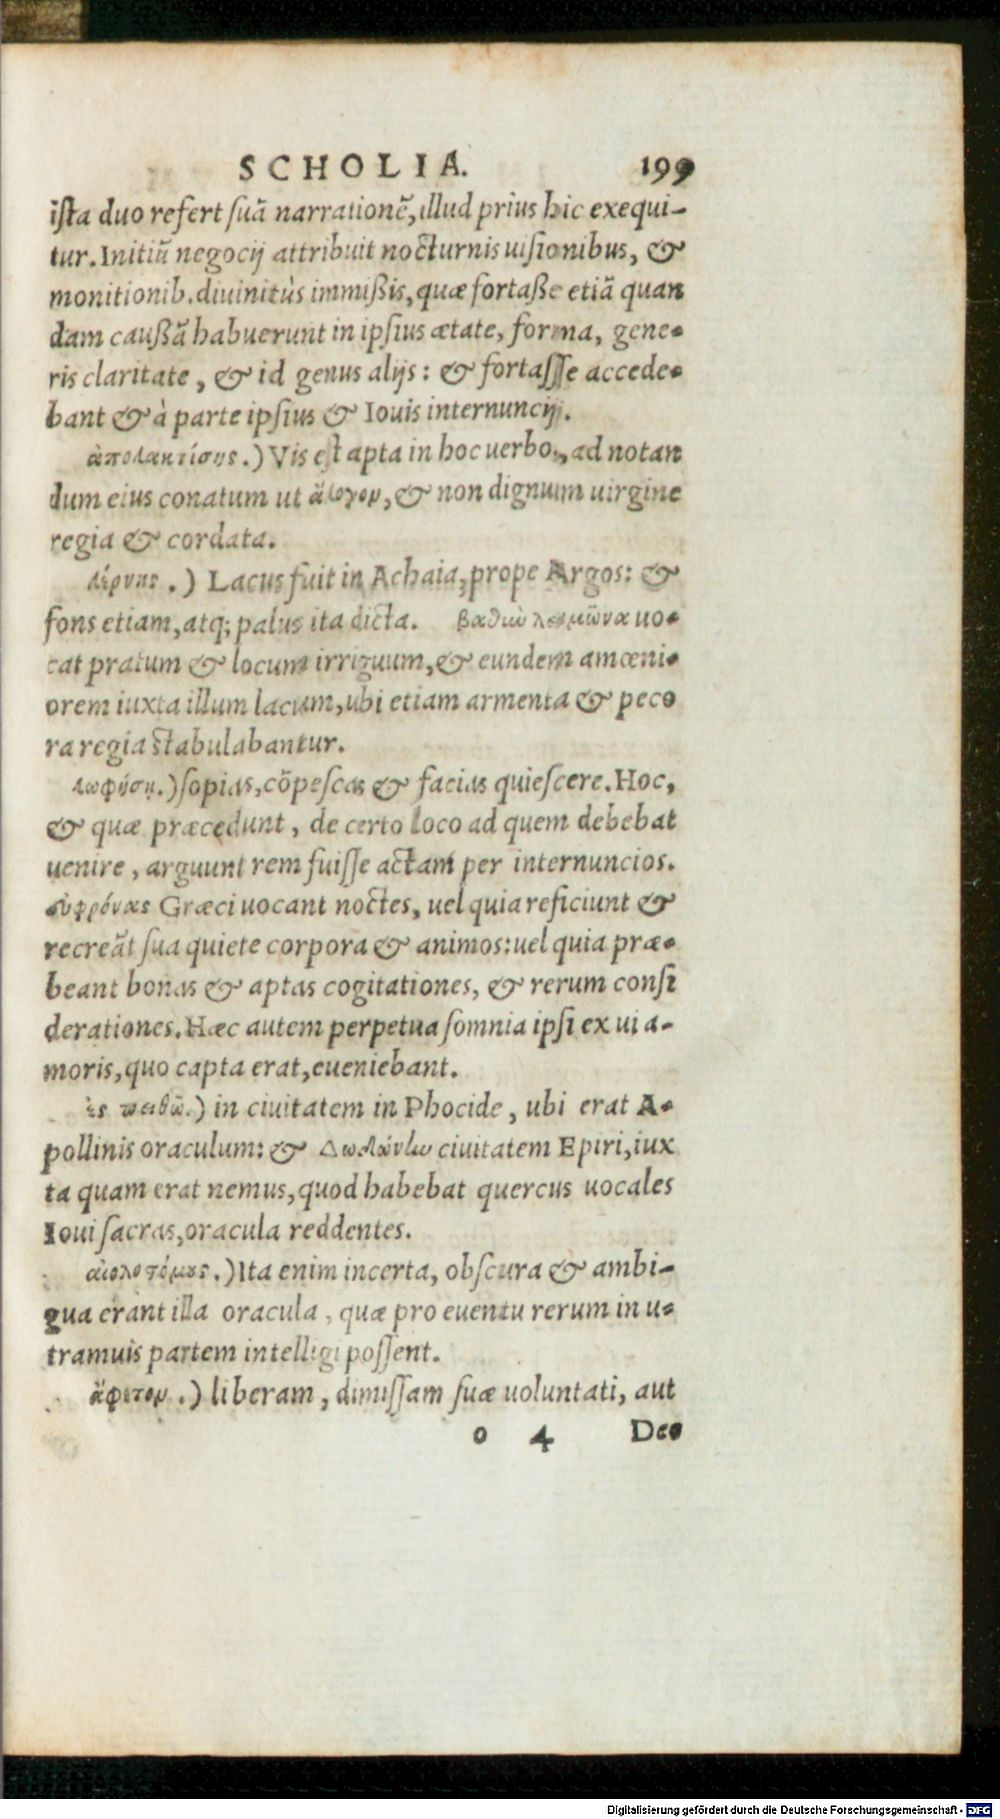 SCHOLIA. 199
ista duo refert suā narrationē, illud prius hic exequi-
tur. Initiū negocij attribuit nocturnis uisionibus, &
monitionib. diuinitùs immißis, quæ fortaße etiā quan
dam caußā habuerunt in ipsius ætate, forma, gene-
ris claritate, & id genus alijs: & fortasse accede-
bant & à parte ipsius & Iouis internuncij.
ἀπολακτίσῃς.) Vis est apta in hoc uerbo, ad notan
dum eius conatum ut ἄλογον, & non dignum uirgine
regia & cordata.
λέρνης.) Lacus fuit in Achaia, prope Argos: &
fons etiam, atq; palus ita dicta. βαθιὼ λειμῶνα uo-
cat pratum & locum irriguum, & eundem amœni-
orem iuxta illum lacum, ubi etiam armenta & peco
ra regia stabulabantur.
λωφήσῃ.) sopias, cōpescas & facias quiescere. Hoc,
& quæ præcedunt, de certo loco ad quem debebat
uenire, arguunt rem fuisse actam per internuncios.
εὐφρόνας Græci uocant noctes, uel quia reficiunt &
recreāt sua quiete corpora & animos: uel quia præ-
beant bonas & aptas cogitationes, & rerum consi
derationes. Hæc autem perpetua somnia ipsi ex ui a-
moris, quo capta erat, eueniebant.
ἐς πυθῶ.) in ciuitatem in Phocide, ubi erat A-
pollinis oraculum: & Δωδώνην ciuitatem Epiri, iux
ta quam erat nemus, quod habebat quercus uocales
Ioui sacras, oracula reddentes.
αἰολοστόμους.) Ita enim incerta, obscura & ambi-
gua erant illa oracula, quæ pro euentu rerum in u-
tramuis partem intelligi possent.
ἄφετον.) liberam, dimissam suæ uoluntati, aut
o 4 Deo
Digitalisierung gefördert durch die Deutsche Forschungsgemeinschaft - DFG